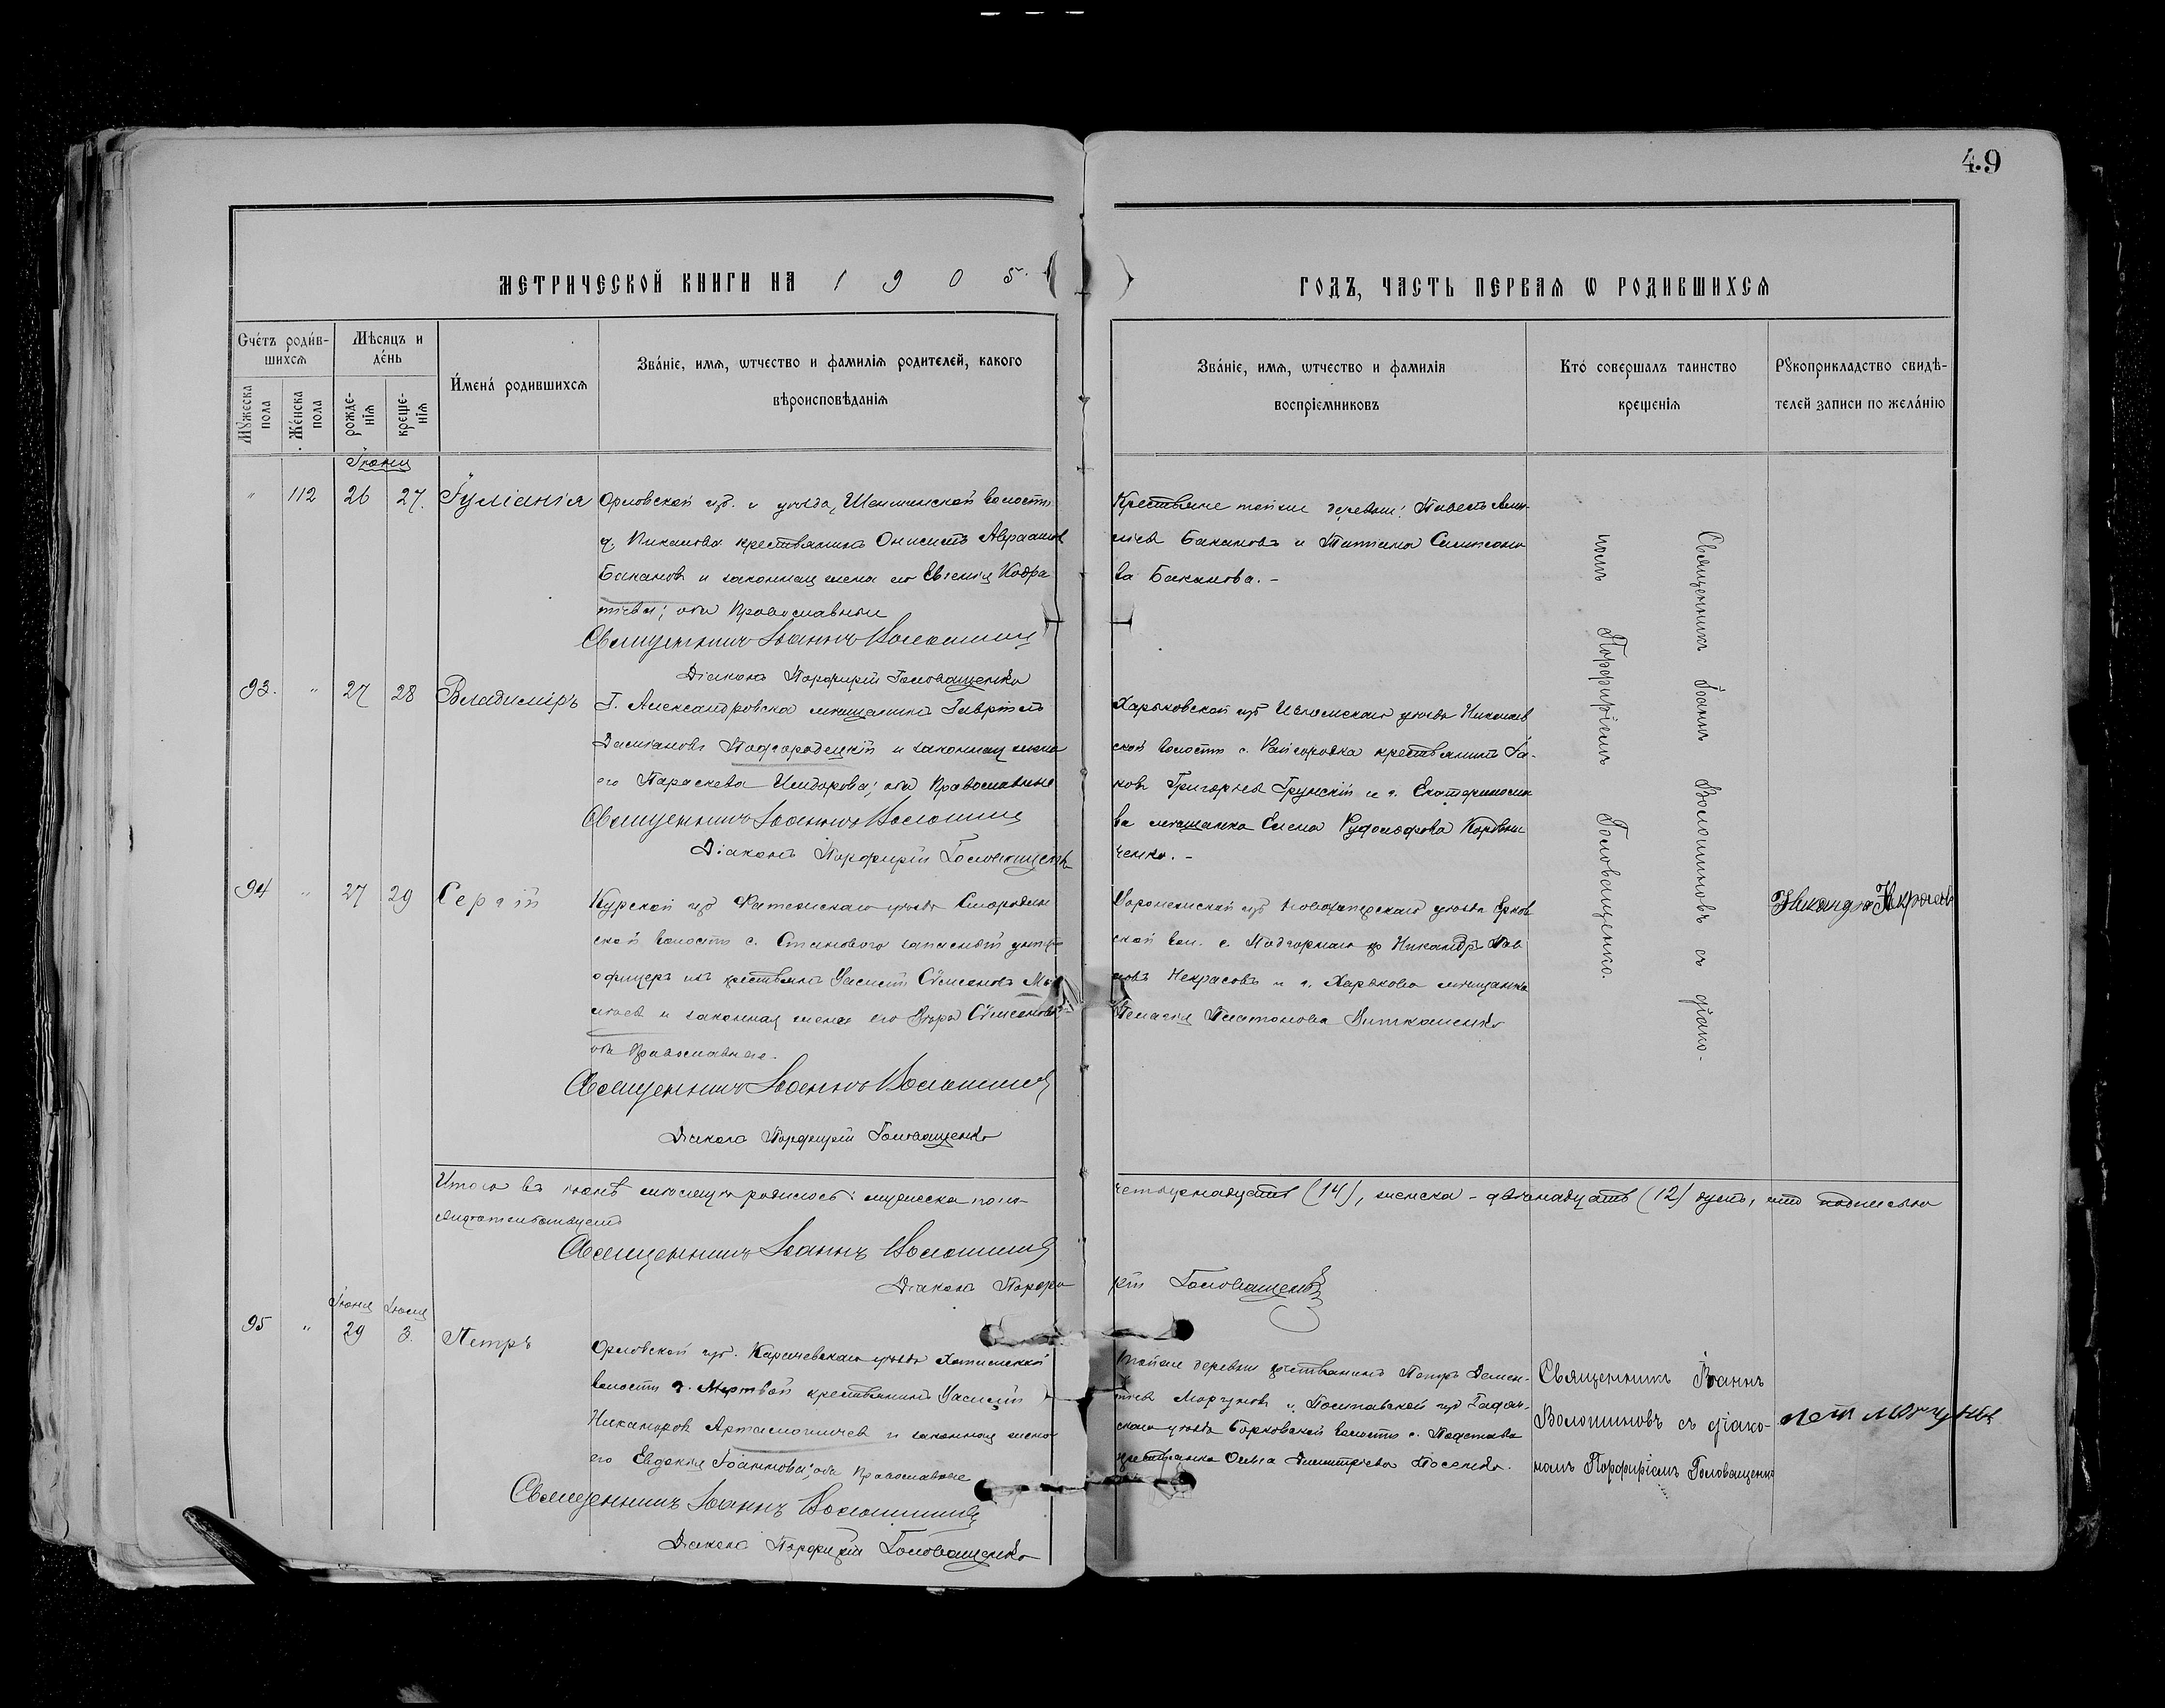 49
МЕТРИЧЕСКОЙ КНИГИ НА 1905
ГОДЪ, ЧАСТЬ ПЕРВАЯ Ѡ РОДИВШИХСЯ
Счетъ родив-
шихся
Мѣсяцъ и
день
Мужеска
пола
Женска
пола
рожде-
нія
креще-
нія
Имена родившихся
Званіе, имя, ѡтчество и фамилія родителей, какого
вѣроисповѣданія
Званіе, имя, ѡтчество и фамилія
воспріемниковъ
Кто совершалъ таинство
крещенія
Рукоприкладство свидѣ-
телей записи по желанію
Іюня
" 112 26 27. Іуліанія
Орловской губ. и уѣзда, волости
д. крестьянинъ Онисимъ Авраамов
Баканов и законная жена его Евгенія Кодра
тіева; оба Православные
Священникъ Іоаннъ Волошинъ
Діаконъ Порфирій Головащенко
Крестьяне тойже деревни:
Баканов и Татіана
ва Баканова. -
93. " 27 28 Владиміръ
Г. Александровска мѣщанинъ Гавріилъ
Даміановъ Подгородецкій и законная жена
его Параскева Исидорова; оба Православные
Священникъ Іоаннъ Волошинъ
Діаконъ Порфирій Головащенко
Харьковской губ Изюмскаго уѣзда Николаев
ской волости с. Райгородка крестьянинъ Іа-
ковъ Григорьев Грунскій и г. Екатеринослa
ва мѣщанка Елена Рудольфова
ченко. -
94 " 27 29 Сергій
Курской губ Фатежскаго уѣзда Смородин
ской волости с. Становаго запасный унтеръ
офицеръ изъ крестьянъ Василій Сѵмеоновъ
и законная жена его Сѵмеонова
оба Православные.
Священникъ Іоаннъ Волошинъ
Діаконъ Порфирій Головащенко
Воронежской губ Новохоперскаго уѣзда
ской вол. с. Подгорнаго кр Никандръ Пав
ловъ Некрасовъ и г. Харькова мѣщанка
Пелагія Платонова
Никандръ Некрасовъ
Священникъ Іоаннъ Волошиновъ съ діако-
номъ Порфиріемъ Головащенко.
Итого въ іюнѣ мѣсяцѣ родилось: мужеска пола
четырнадцать (14), женска - двѣнадцать (12) душъ, что подписью
свидѣтельствуемъ
Священникъ Іоаннъ Волошинъ
Діаконъ Порфирій Головащенко
Іюня Іюля
95 " 29 3. Петръ
Орловской губ. Карачевскаго уѣзда
волости д. Мертвой крестьянинъ Василій
Никаноровъ и законная жена
его Евдокія Іоаннова; оба Православные
Священникъ Іоаннъ Волошинъ
Діаконъ Порфирій Головащенко
Тойже деревни крестьянинъ Петръ Демен-
тіев Моргунов и Полтавской губ Гадяч-
скаго уѣзда Борковской волости с. Подстава
крестьянка Ольга Димитріева
Священникъ Іоаннъ
Волошиновъ съ діако-
номъ Порфиріемъ Головащенко